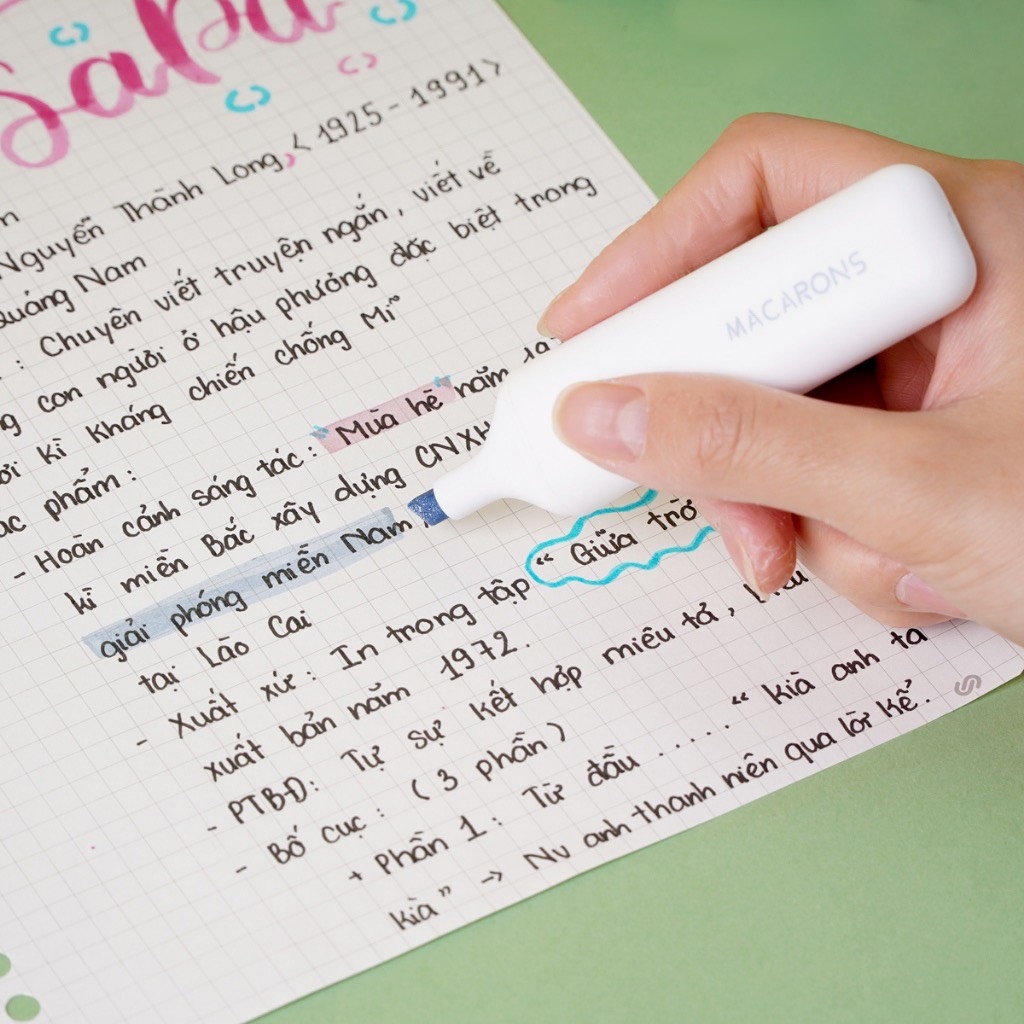 SaPa
Nguyễn Thành Long, < 1925 - 1991 >
Quảng Nam
: Chuyên viết truyện ngắn, viết về
con người ở hậu phương đặc biệt trong
kì kháng chiến chống Mĩ
phẩm :
- Hoàn cảnh sáng tác : Mùa hè năm
kì miền Bắc xây dựng CNXH
giải phóng miền Nam,
tại Lào Cai
- Xuất xứ : In trong tập “ Giữa trờ
xuất bản năm 1972.
- PTBĐ: Tự sự kết hợp miêu tả,
- Bố cục : ( 3 phần )
+ Phần 1 : Từ đầu ..... “ kìa anh ta
kìa” → Nv anh thanh niên qua lời kể.
MACARONS